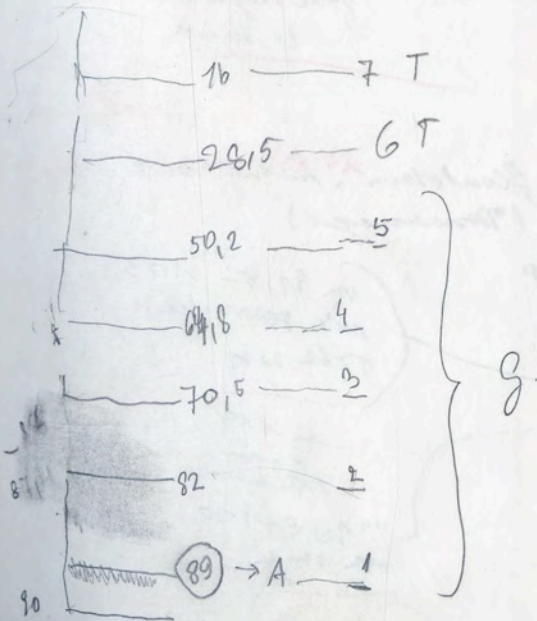 16 — 7 T
28,5 — 6 T
50,2 — 5
64,8 — 4
70,5 — 3
82 2
89 → A — 1
90